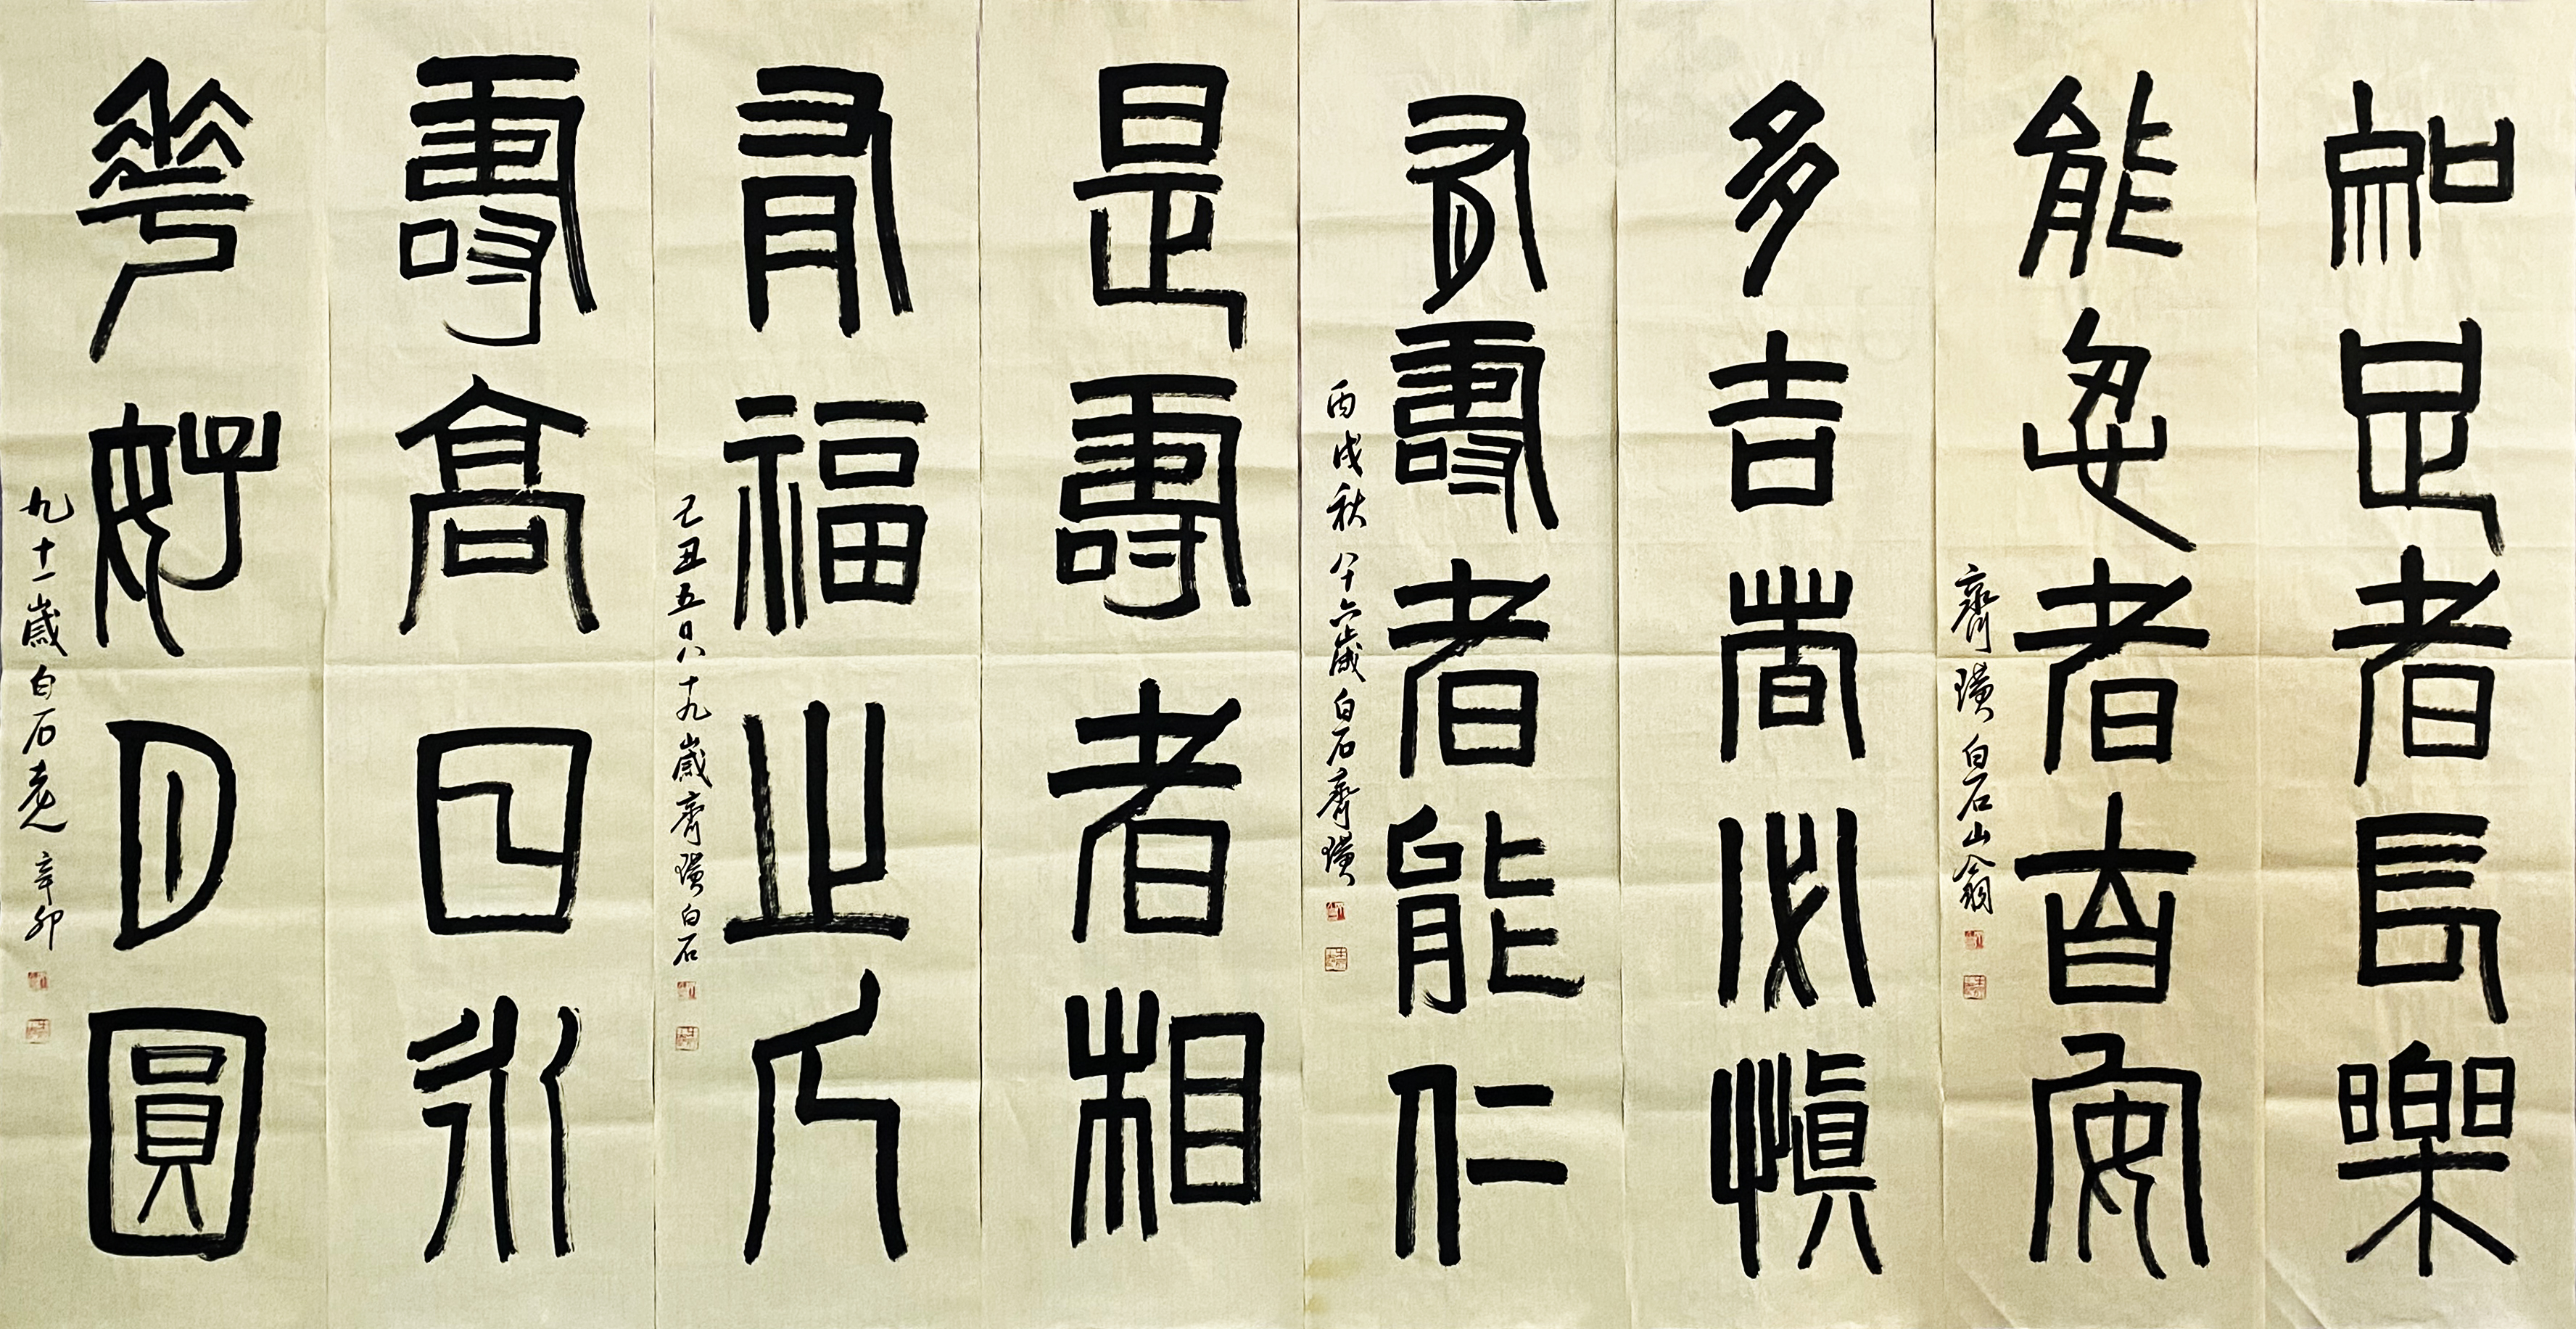 知足者長樂
能忍者自安
齊璜白石山翁
多吉必慎
有壽者能仁
丙戌秋八十六歲白石齊璜
是壽者相
有福之人
己丑五日八十九歲齊璜白石
壽高日永
華好月圓
九十一歲白石老人辛卯